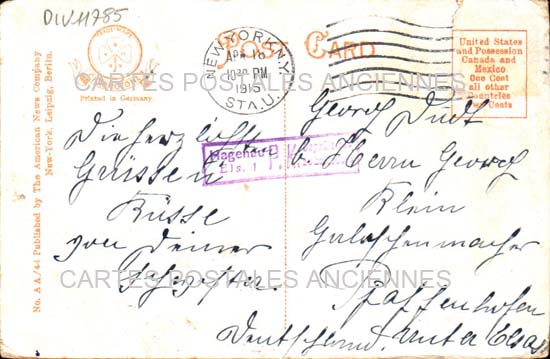 DIV11785
POST CARD
TRADE-MARK
Printed in Germany
NEW YORK, N.Y.
APR 16
10 30 PM
1915
STA. U.
United States
and Possession
Canada and
Mexico
One Cent
all other
Countries
Two Cents
No. AA/44 Published by The American News Company
New-York, Leipzig, Berlin.
Hagenau
Els. 1
CARTES POSTALES ANCIENNES
Die herzlichsten
Grüsse u
Küsse
von deiner
Schwester.
Georg Dudt
b. Herrn Georg
Klein
Galoschenmacher
Pfaffenhofen
Deutschland. Unter Elsas
CARTES POSTALES ANCIENNES